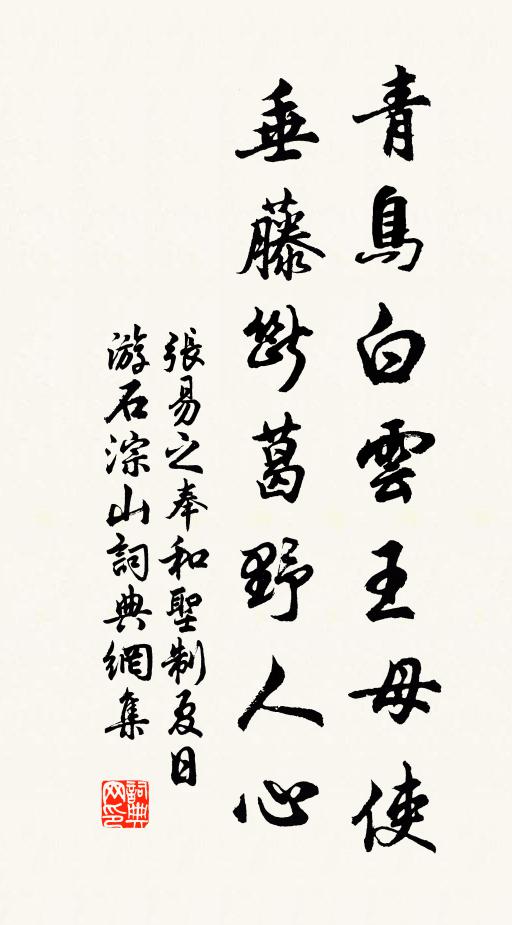 青鳥白雲王母使
垂藤斷葛野人心
張易之奉和聖制夏日
游石淙山詞典網集
詞典
网印